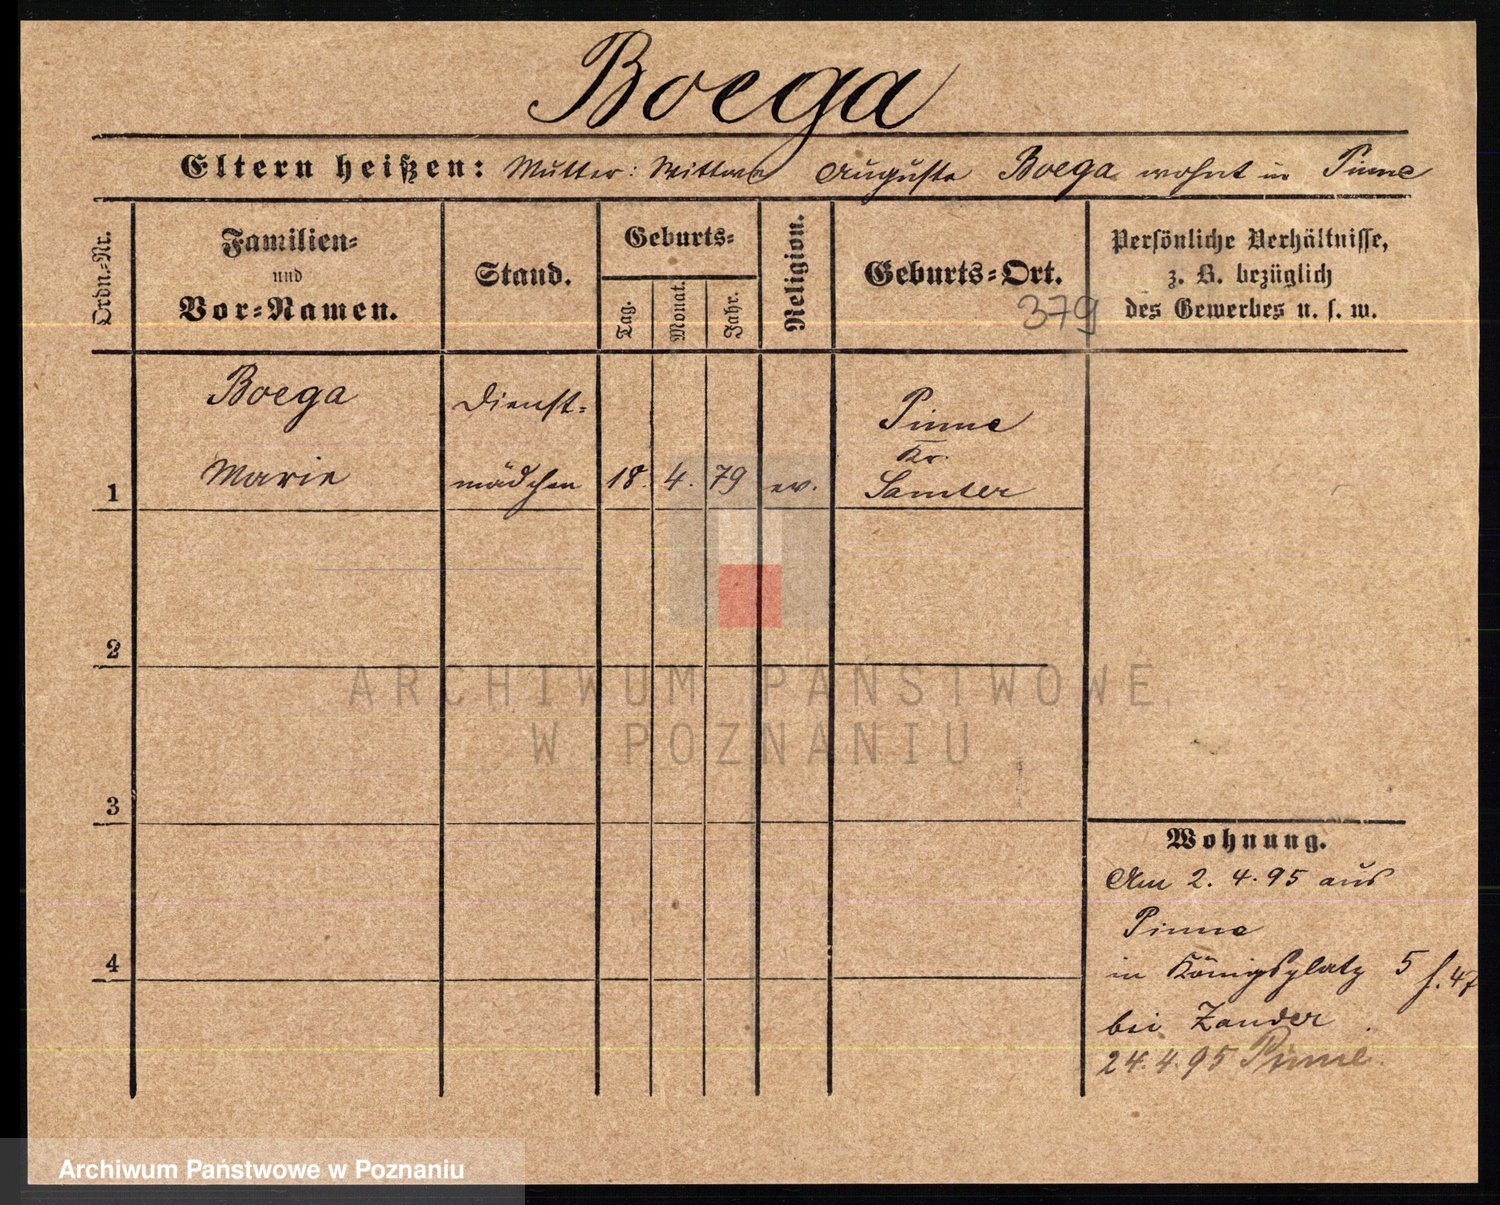 Boega
Eltern heißen: Mutter: Wittwe Auguste Boega wohnt in Pinne
Ordn.-Nr.
Familien-
und
Vor-Namen.
Stand.
Geburts-
Tag.
Monat.
Jahr.
Religion.
Geburts-Ort.
379
Persönliche Verhältnisse,
z. B. bezüglich
des Gewerbes u. s. w.
Boega
Marie
Dienst-
mädchen
18. 4. 79 ev.
Pinne
Kr.
Samter
1
2
3
4
Wohnung.
Am 2. 4. 95 aus
Pinne
in Königsplatz 5
bei Zander
24.4.95 Pinne.
ARCHIWUM PAŃSTWOWE
W POZNANIU
Archiwum Państwowe w Poznaniu